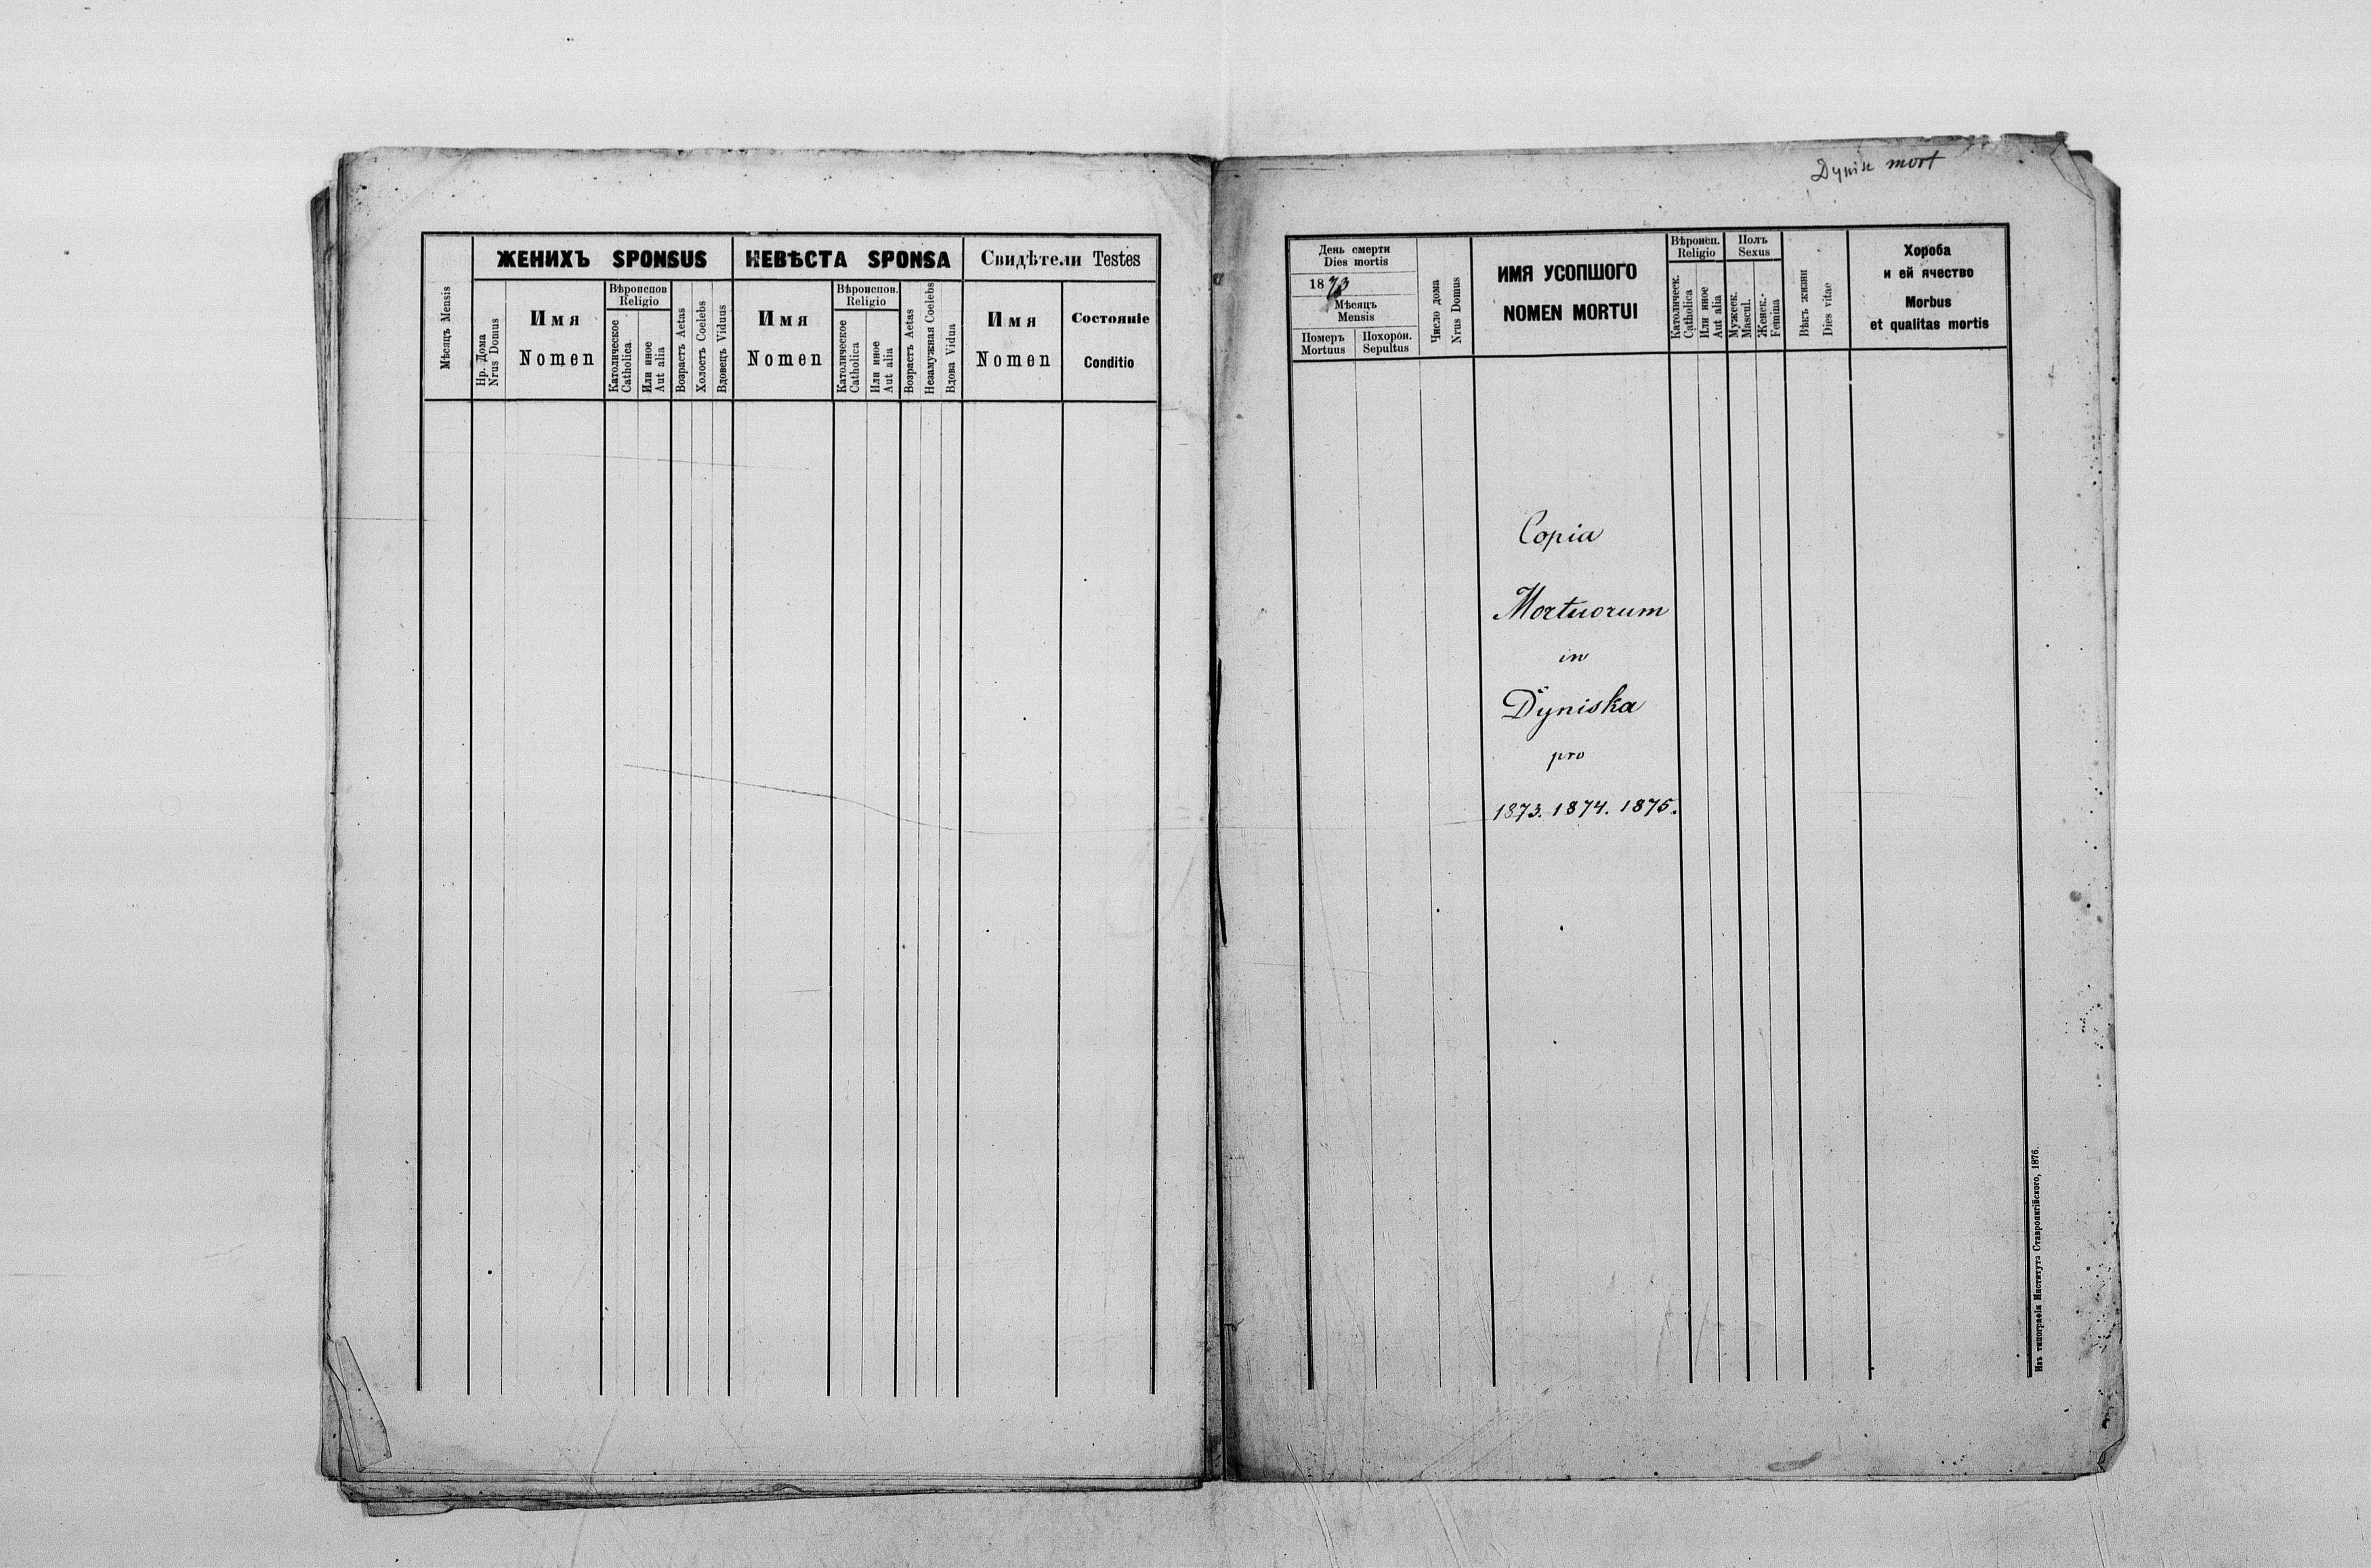 ЖЕНИХЪ SPONSUS
НЕВѢСТА SPONSA
Свидѣтели Testes
Мѣсяцъ Mensis
Нр. Дома
Nrus Domus
Имя
Nomen
Вѣроиспов
Religio
Католическое
Catholica
Или иное
Aut alia
Возрастъ Aetas
Холостъ Coelebs
Вдовецъ Viduus
Имя
Nomen
Вѣроиспов.
Religio
Католическое
Catholica
Или иное
Aut alia
Возрастъ Aetas
Незамужная Coelebs
Вдова Vidua
Имя
Nomen
Состоянiе
Conditio
Dynisk mort
День смерти
Dies mortis
1873
Мѣсяцъ
Mensis
Померъ
Mortuus
Похорон.
Sepultus
Число дома
Nrus Domus
ИМЯ УСОПШОГО
NOMEN MORTUI
Вѣроисп.
Religio
Католическ.
Catholica
Или иное
Aut alia
Полъ
Sexus
Мужеск.
Mascul.
Женск.-
Femina
Вѣкъ жизни
Dies vitae
Хороба
и ей ячество
Morbus
et qualitas mortis
Copia
Mortuorum
in
Dyniska
pro
1873. 1874. 1875.
Изъ типографiи Института Ставропигiйского, 1876.